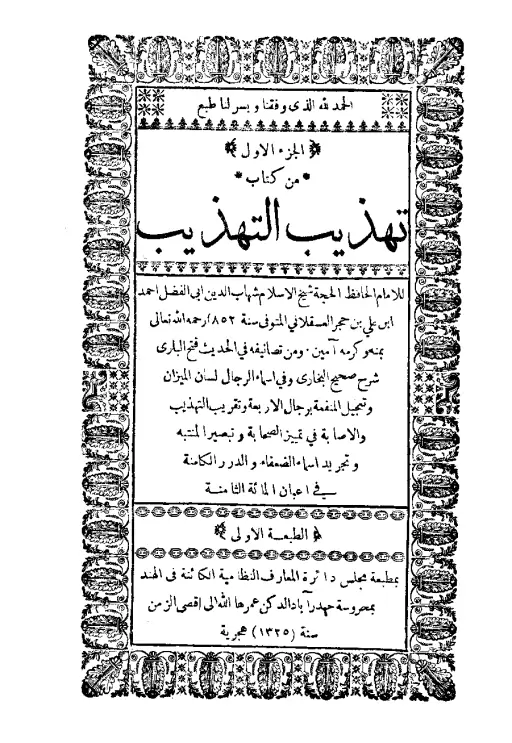 الحمد لله الذى وفقنا ويسر لنا طبع
الجزء الاول
من كتاب
تهذيب التهذيب
للامام الحافظ الحجة شيخ الاسلام شهاب الدين ابى الفضل احمد
ابن علي بن حجر العسقلاني المتوفى سنة ٨٥٢ رحمه الله تعالى
بمنه وكرمه آمين . ومن تصانيفه في الحديث فتح البارى
شرح صحيح البخارى وفى اسماء الرجال لسان الميزان
وتعجيل المنفعة برجال الاربعة وتقريب التهذيب
والاصابة في تمييز الصحابة وتبصير المنتبه
وتجريد اسماء الضعفاء والدرر الكامنة
في اعيان المائة الثامنة
الطبعة الاولى
بمطبعة مجلس دائرة المعارف النظامية الكائنة فى الهند
بمحروسة حيدرآباد الدكن عمرها الله الى اقصى الزمن
سنة (١٣٢٥) هجرية